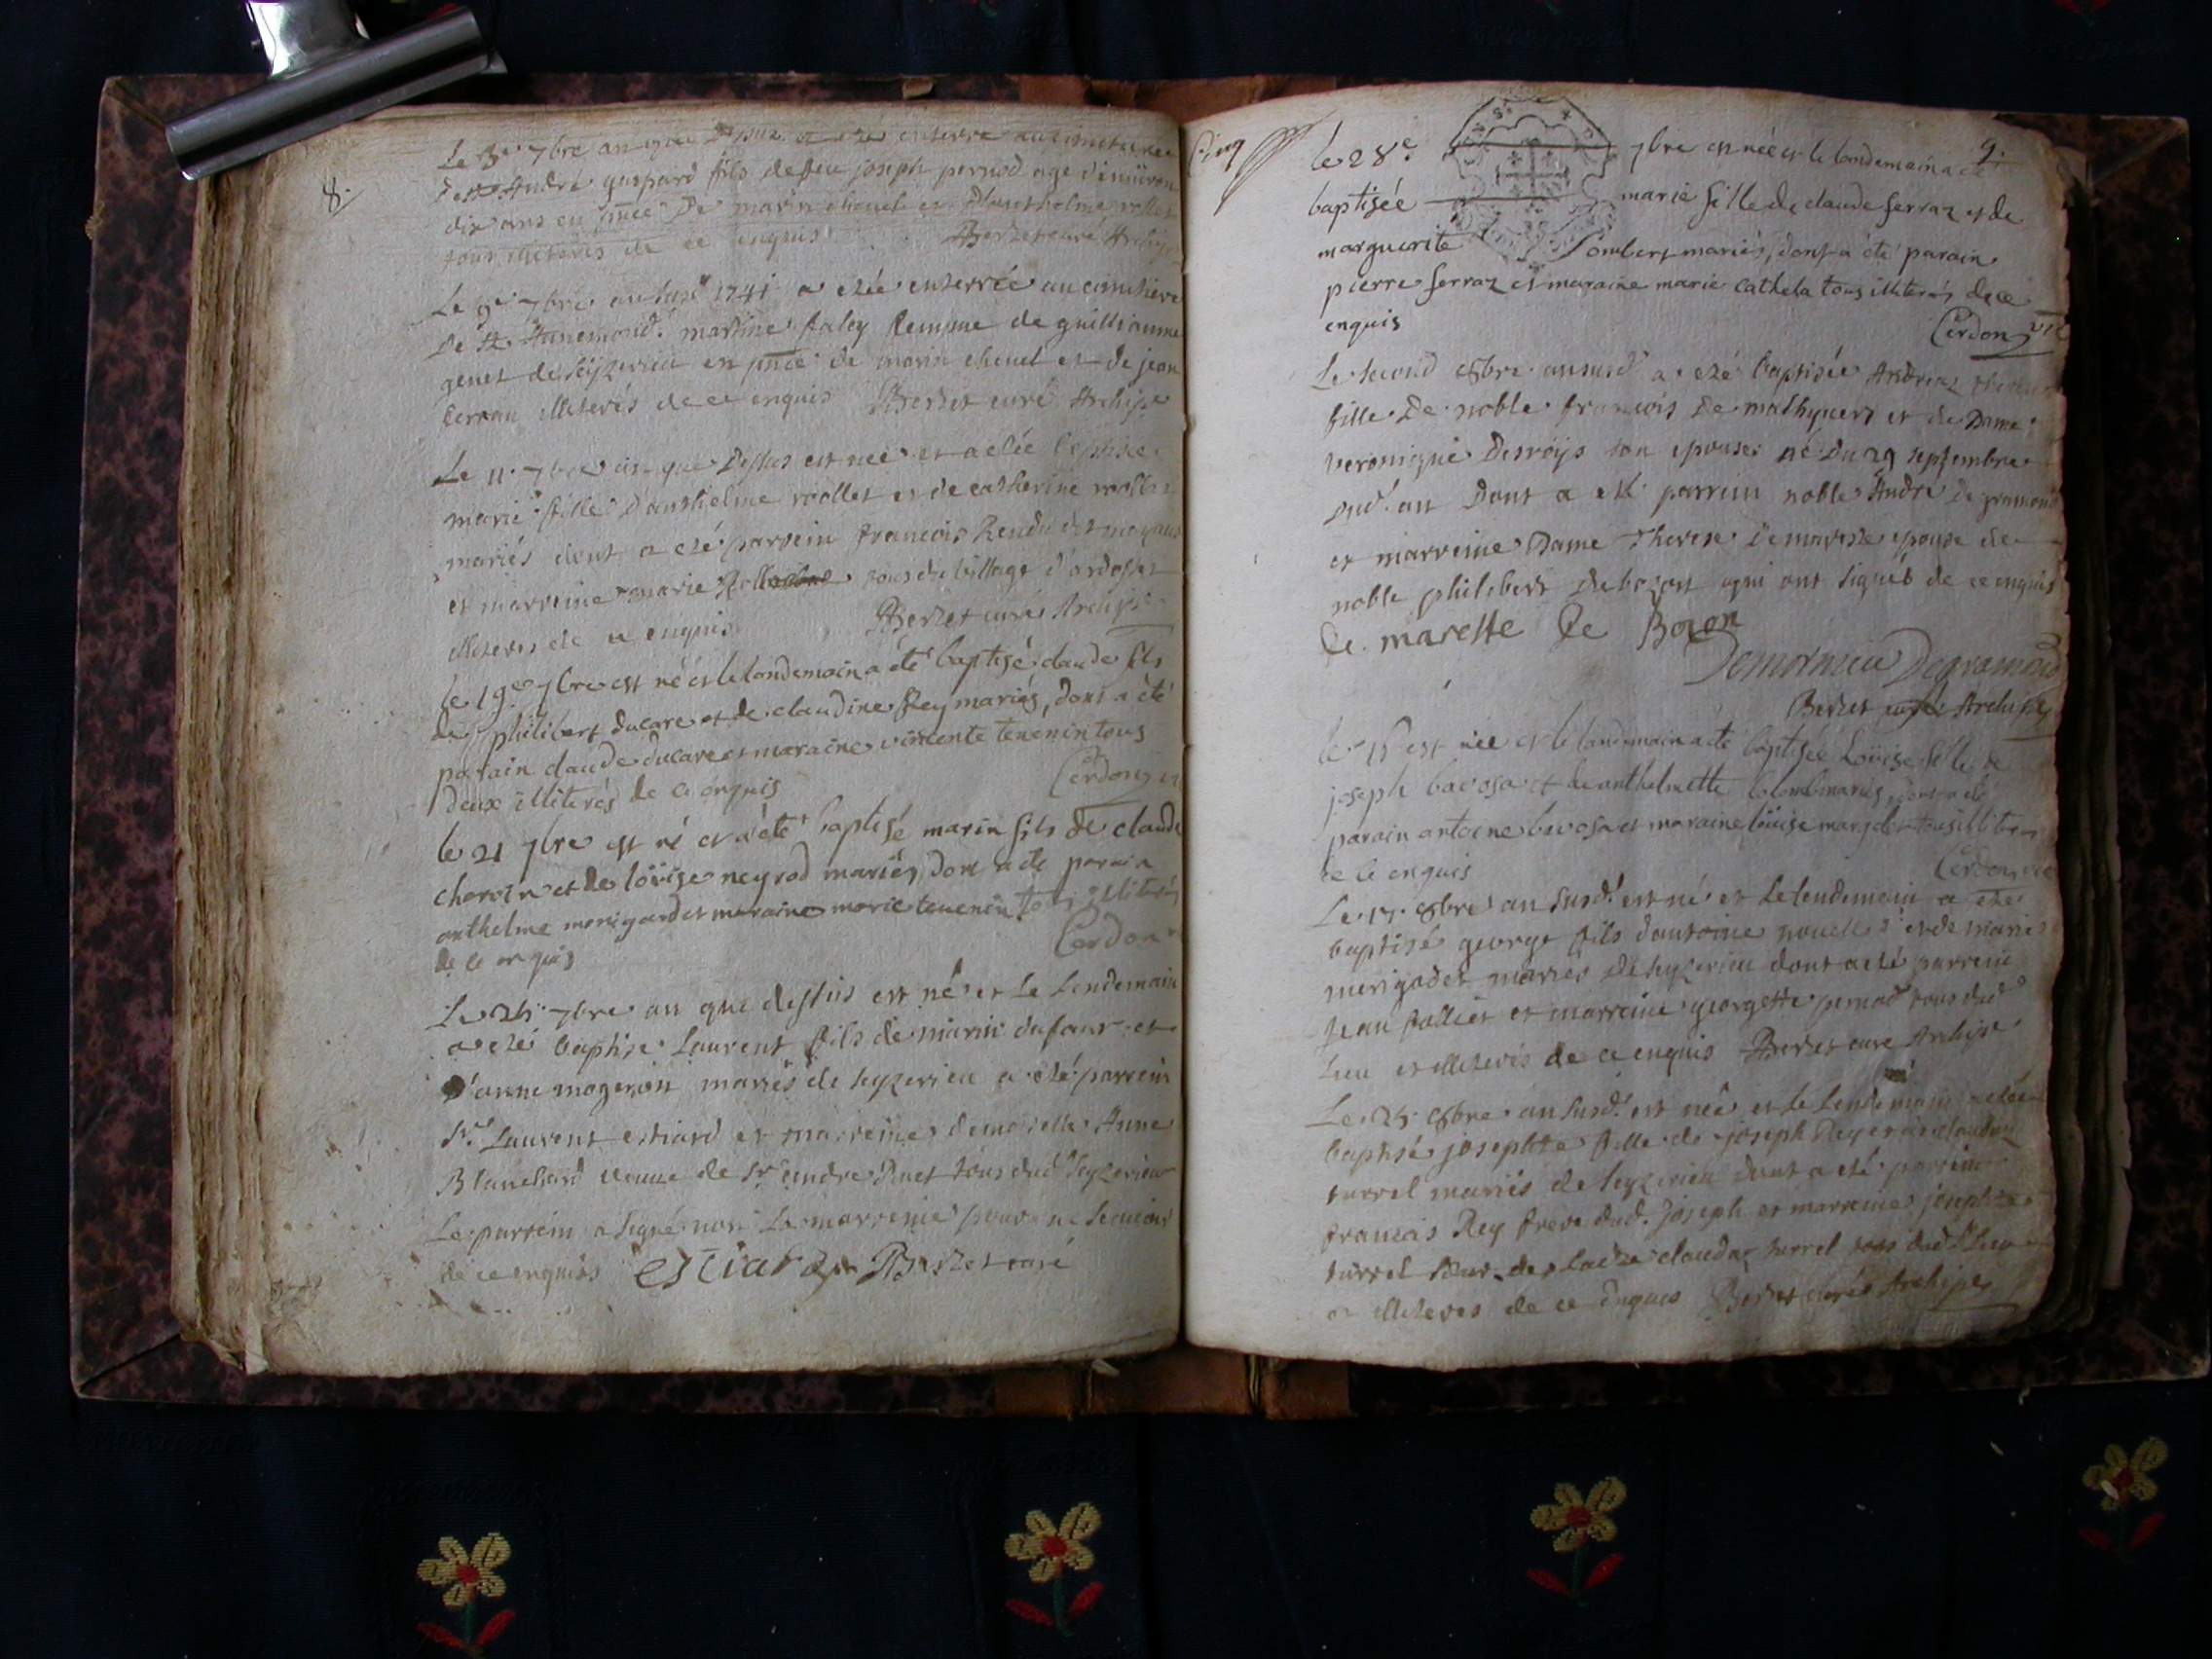 8.
Le 3e 7bre an que dessus a eté enterré au cimetiere
de st André gaspard fils de feu joseph pernod age d'environ
dix ans en pñce de marin chenel et d'Anthelme rollet
tous illiterés de ce enquis Berzet curé Archip
Le 9e 7bre an susd 1741 a etée enterrée au cimetiere
de st Annemond martine faley femme de guilliaume
genet de seyzerieu en pñce de marin chenel et de jean
illiterés de ce enquis Berzet curé Archip
Le 11 7bre an que dessus est née et a etée baptisée
marie fille d'anthelme rollet et de catherine rollet
mariés dont a eté parrein francois Rendu
et marreine marie tous du village d'ardosset
illiterés de ce enquis Berzet curé Archip
le 19e 7bre est né et le londemain a été baptisé claude fils
de philibert ducare et de claudine Rey mariés, dont a été
parain claude ducare et maraine vincente tenenin tous
deux illiterés de ce enquis Cerdon
le 21 7bre est né et a été baptisé marin fils de claude
charvin et de loüise neyrod mariés, dont a été parain
anthelme merigard et maraine marie tenenin tous illiterés
de ce enquis Cerdon
Le 25 7bre an que dessus est né et le lendemain
a eté baptise Laurent fils de marin dufour et
d'anne mogenon mariés de seyzerieu a eté parrein
sr. Laurent estiard et marreine demoiselle Anne
Blanchard veuve de sr andre tous dud seyzerieu
Le parrein a signé non la marreine pour ne sçavoir
de ce enquis estiard Berzet curé
9.
le 28e 7bre est née et le londemain a été
baptisée marie fille de claude ferraz et de
marguerite Sombert mariés, dont a été parain
pierre ferraz et maraine marie cathela tous illiterés de ce
enquis Cerdon vic
Le second 8bre an susd a eté baptisée
fille de noble francois de mathyuer et de Dame
veronique Desroys son epouse né du 29 septembre
dud. an dont a eté parrein noble André de gramond
et marreine Dame Therese Demareste epouse de
noble philibert de bozon qui ont signés de ce enquis
de mareste de Bozon
Degramond
Berzet curé Archip
le 15 est née et le landemain a été baptisée Loüise fille de
joseph bavosa et de anthelmette Colomb mariés, dont a été
parain antoine bavosa et maraine loüise tous illiterés
de ce enquis Cerdon vic
Le 17 8bre an susd. est né et le lendemain a eté
baptisé george fils d'antoine et de marie
merigodet mariés de seyzerieu dont a eté parrein
jean follier et marreine georgette pernod tous dud
lieu et illiterés de ce enquis Berzet curé Archip
Le 25 8bre an susd. est née et le lendemain a etée
baptisé josephte fille de joseph Rey et de claudaz
turrel mariés de seyzerieu dont a eté parrein
francois Rey frere dud. joseph et marreine josephte
turrel sœur de ladte claudaz turrel tous dud lieu
et illiterés de ce enquis Berzet curé Archip